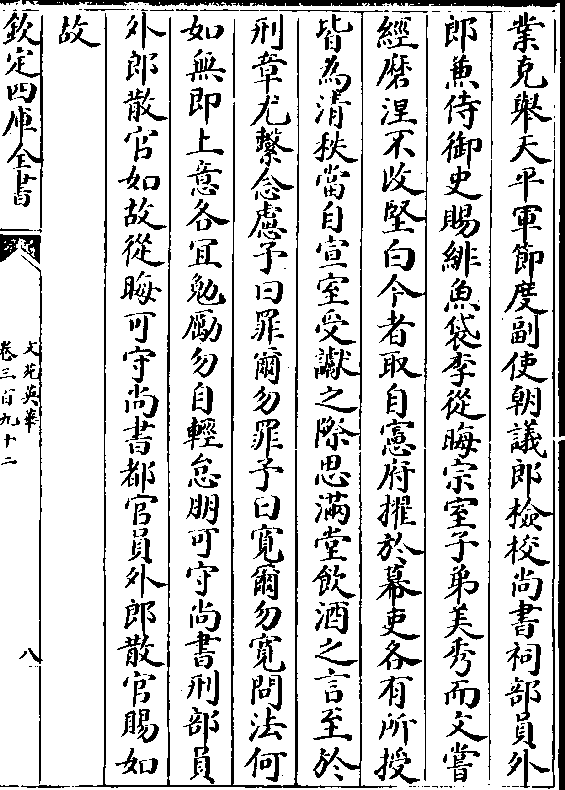 業克舉天平軍節度副使朝議郎檢校尚書祠部員外
郎兼侍御史賜緋魚袋李從晦宗室子弟美秀而文嘗
經磨涅不改堅白今者取自憲府擢於幕吏各有所授
皆為清秩當自宣室受讞之際思滿堂飲酒之言至於
刑章尤繫念慮予曰罪爾勿罪予曰寬爾勿寬問法何
如無即上意各宜勉勵勿自輕怠朋可守尚書刑部員
外郎散官如故從晦可守尚書都官員外郎散官賜如
故
欽定四庫全書
文苑英華
卷三百九十二
八